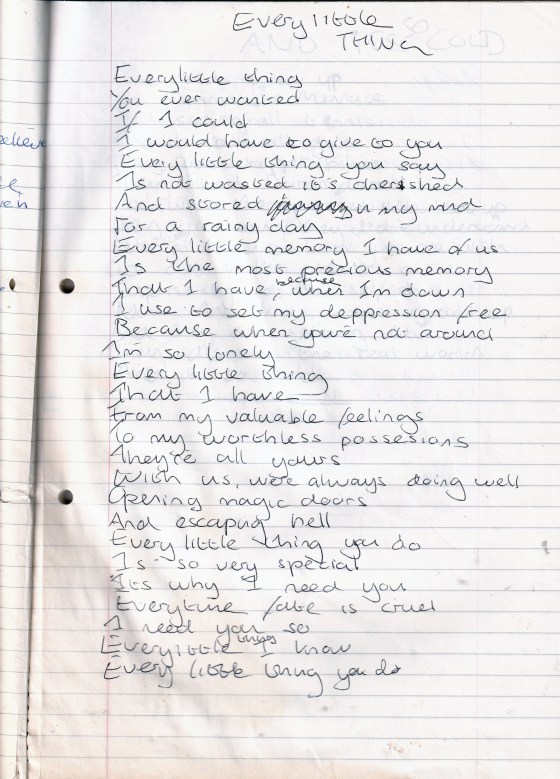 Every little
THING
Everylittle thing
You ever wanted
If I could
I would have to give to you
Every little thing you say
Is not wasted it's cherished
And stored in my mind
For a rainy day
Every little memory I have of us
Is the most precious memory
That I have, because when Im down
I use to set my deppression free
Because when you're not around
Im so lonely
Every little thing
That I have
From my valuable feelings
To my worthless possesions
They're all yours
With us, we're always doing well
Opening magic doors
And escaping hell
Every little thing you do
Is so very special
Its why I need you
Everytime fate is cruel
I need you so
Everylittle things I know
Every little thing you do